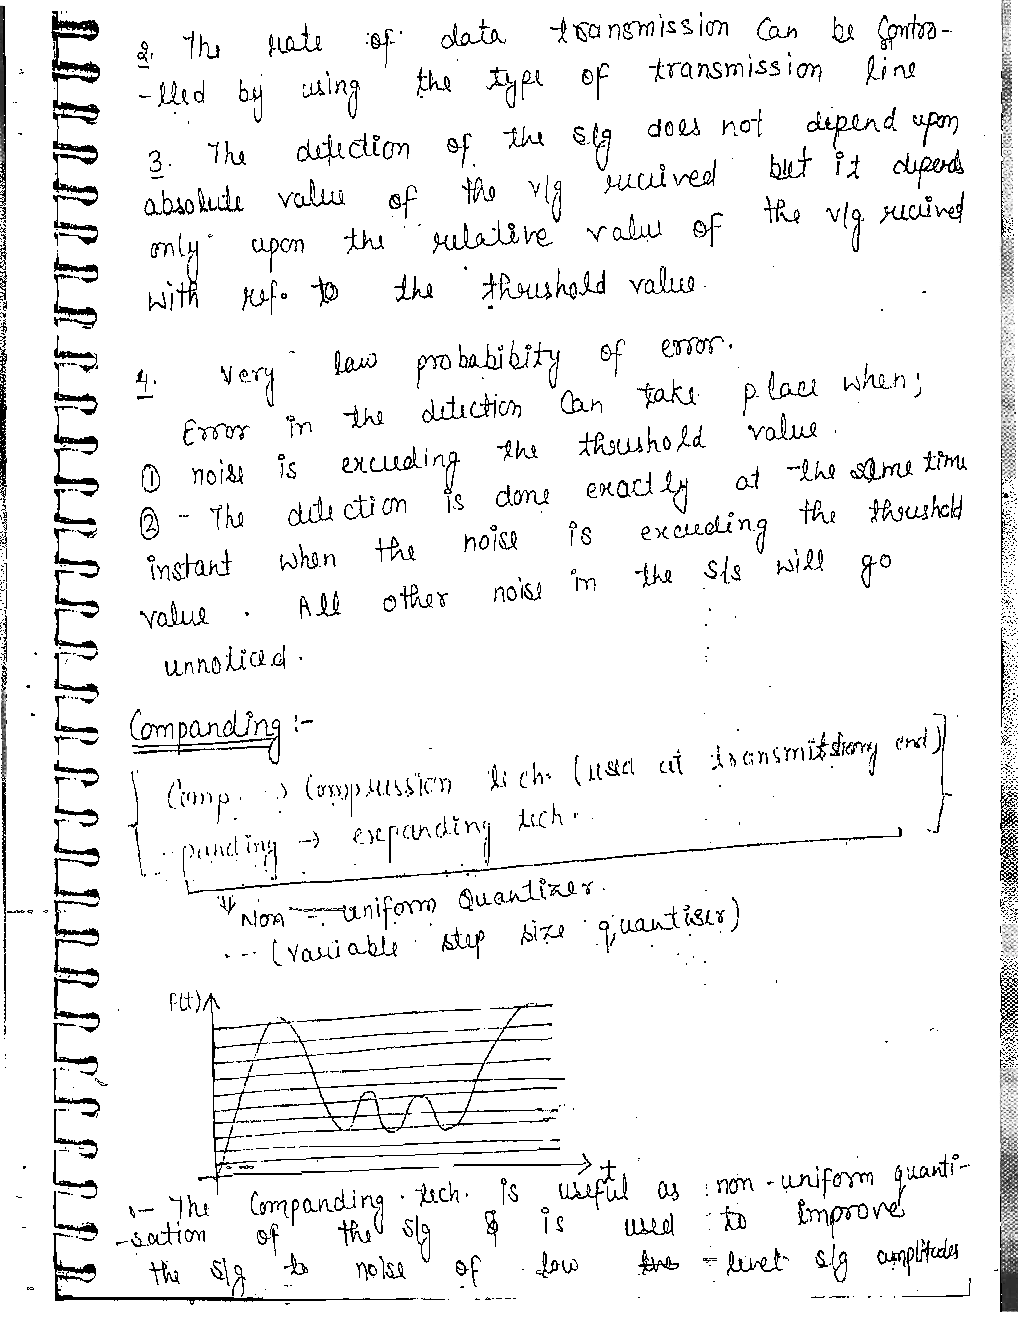 2. The rate of data transmission can be contro-
-lled by using the type of transmission line
3. The detection of the s/g does not depend upon
absolute value of the v/g received but it depends
only upon the relative value of the v/g recived
with ref. to the threshold value.
4. Very law probabibity of error.
Error in the detection can take place when;
① noise is exceeding the threshold value.
② - The detection is done exactly at the same time
instant when the noise is exceeding the threshold
value. All other noise in the s/s will go
unnoticed.
Companding :-
Comp. → Compression tech. (used at transmitting end)
panding → expanding tech.
Non - uniform Quantizer.
(variable step size quantiser)
f(t)
t
:- The Companding tech. is useful as non-uniform quanti-
-sation of the s/g is used to improve
the s/g to noise of low - level s/g amplitudes